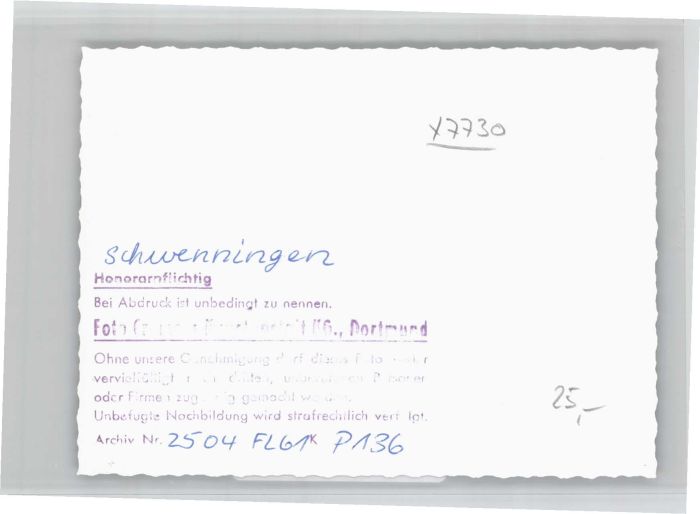 X7730
Schwenningen
Honorarpflichtig
Bei Abdruck ist unbedingt zu nennen.
Foto KG., Dortmund
Ohne unsere Genehmigung darf dieses Foto
vervielfältigt
oder Firmen gemacht werden.
Unbefugte Nachbildung wird strafrechtlich verfolgt.
Archiv Nr. 2504 FL61K P136
25,-